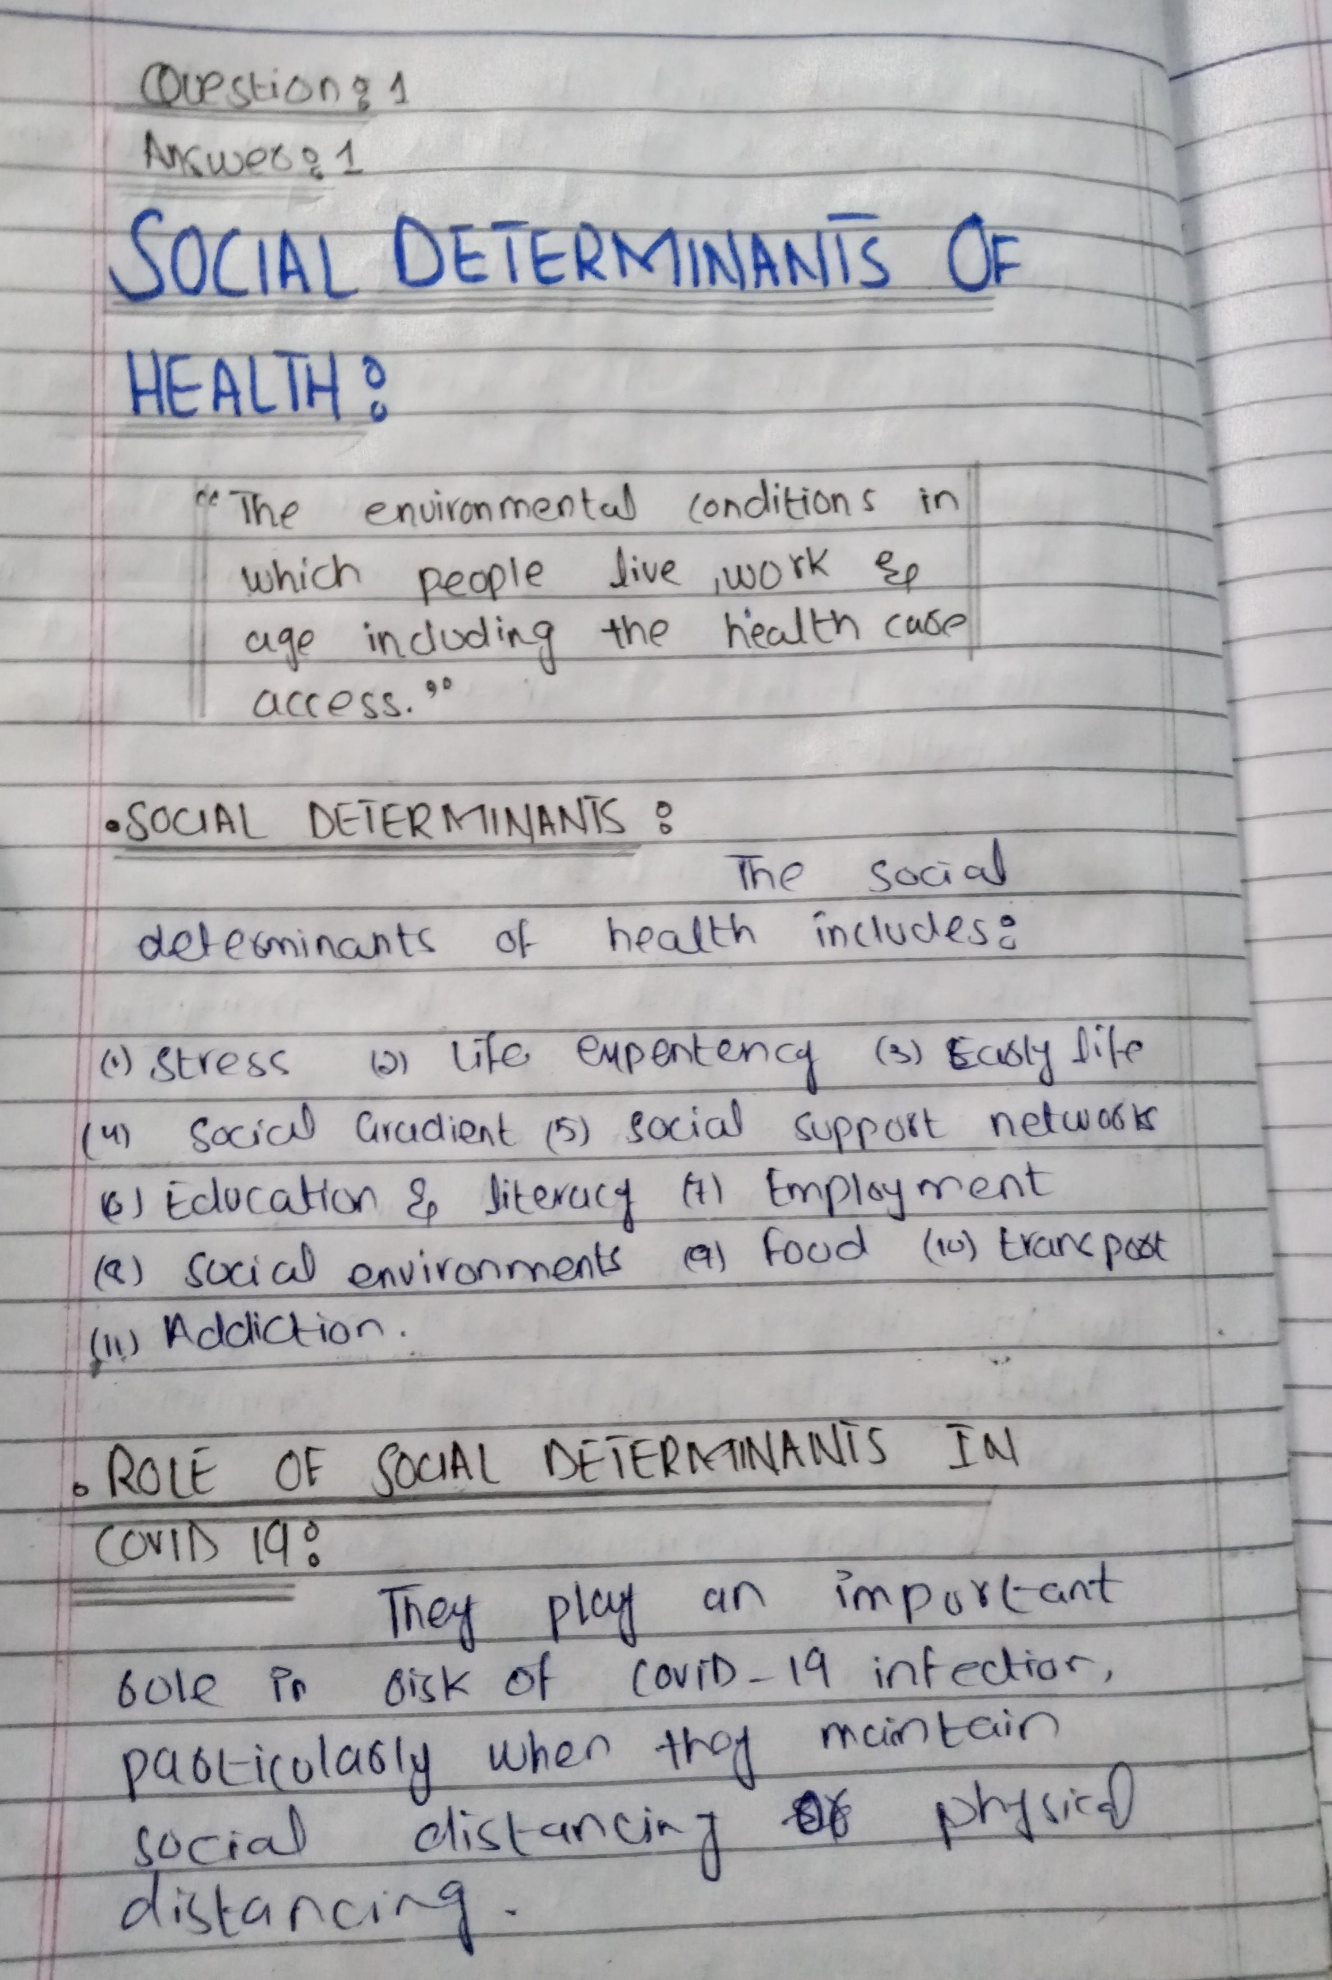 Question: 1
Answer: 1
SOCIAL DETERMINANTS OF
HEALTH:
"The environmental conditions in
which people live, work &
age including the health care
access."
• SOCIAL DETERMINANTS:
The social
determinants of health includes:
(1) Stress (2) Life expentency (3) Early life
(4) Social Gradient (5) Social support network
(6) Education & literacy (7) Employment
(8) Social environments (9) Food (10) transport
(11) Addiction.
• ROLE OF SOCIAL DETERMINANTS IN
COVID 19:
They play an important
role in risk of COVID-19 infection,
particularly when they maintain
social distancing or physical
distancing.